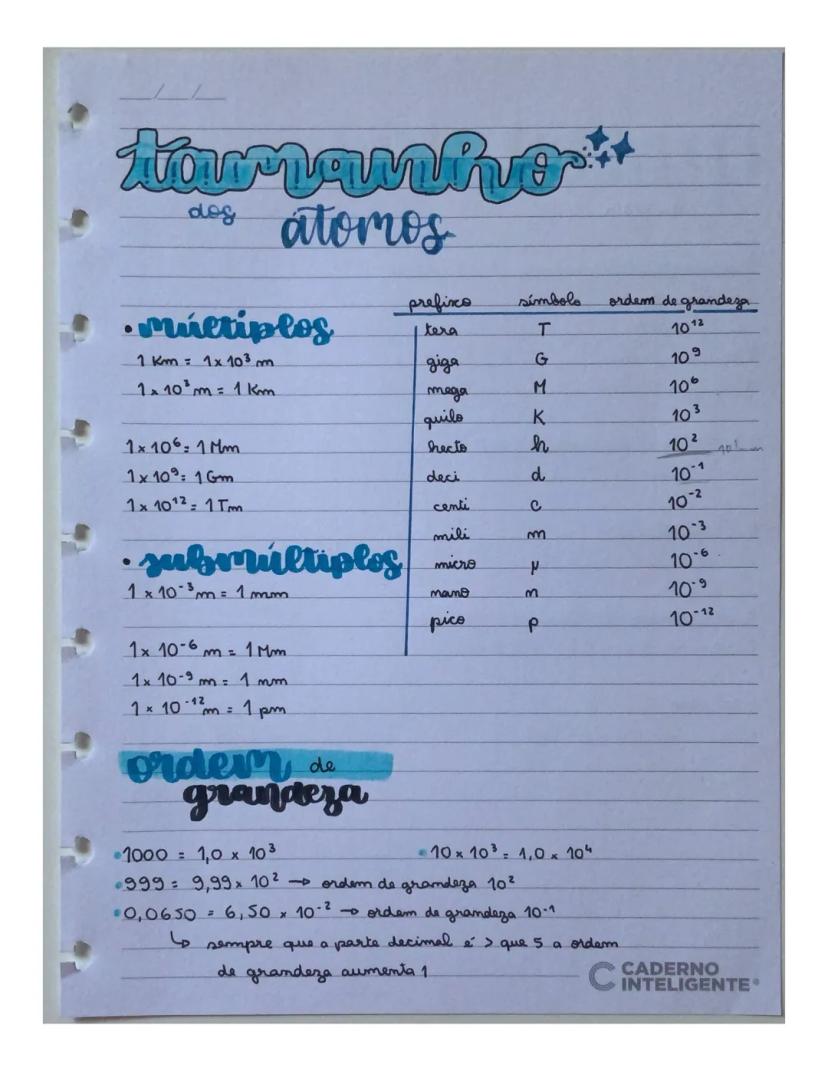 __/__/__
tamanho
dos
átomos
• múltiplos
1 Km = 1 x 10³ m
1 x 10³ m = 1 Km
1 x 10⁶ = 1 Mm
1 x 10⁹ = 1 Gm
1 x 10¹² = 1 Tm
• submúltiplos
1 x 10⁻³ m = 1 mm
1 x 10⁻⁶ m = 1 Mm
1 x 10⁻⁹ m = 1 nm
1 x 10⁻¹² m = 1 pm
prefixo símbolo ordem de grandeza
tera T 10¹²
giga G 10⁹
mega M 10⁶
quilo K 10³
hecto h 10²
deci d 10⁻¹
centi c 10⁻²
mili m 10⁻³
micro μ 10⁻⁶
nano n 10⁻⁹
pico p 10⁻¹²
ordem de
grandeza
• 1000 = 1,0 x 10³ • 10 x 10³ = 1,0 x 10⁴
• 999 = 9,99 x 10² → ordem de grandeza 10²
• 0,0650 = 6,50 x 10⁻² → ordem de grandeza 10⁻¹
↳ sempre que a parte decimal é > que 5 a ordem
de grandeza aumenta 1
CADERNO
INTELIGENTE®